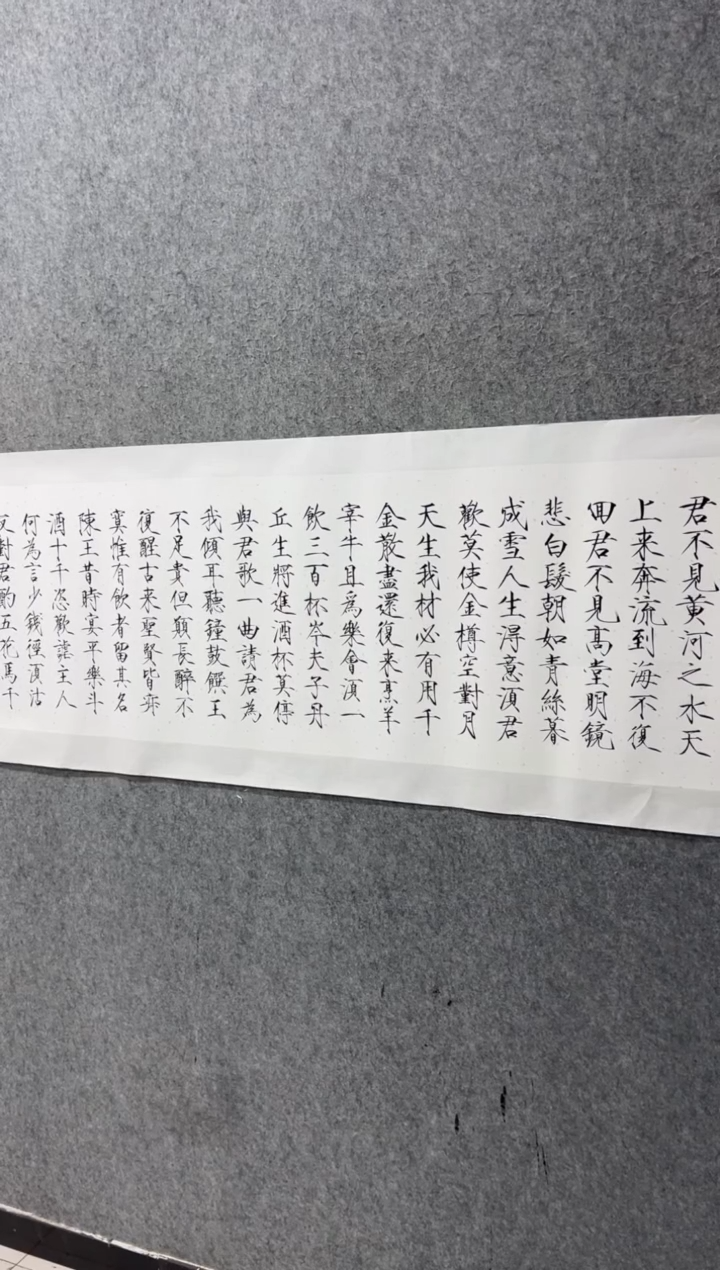 君不見黃河之水天
上来奔流到海不復
回君不見高堂明鏡
悲白髮朝如青絲暮
成雪人生得意須君
歡莫使金樽空對月
天生我材必有用千
金散盡還復来烹羊
宰牛且為樂會須一
飲三百杯岑夫子丹
丘生將進酒杯莫停
與君歌一曲請君為
我傾耳聽鐘鼓饌玉
不足貴但願長醉不
復醒古来聖賢皆寂
寞惟有飲者留其名
陳王昔時宴平樂斗
酒十千恣歡謔主人
何為言少錢徑須沽
對君酌五花馬千